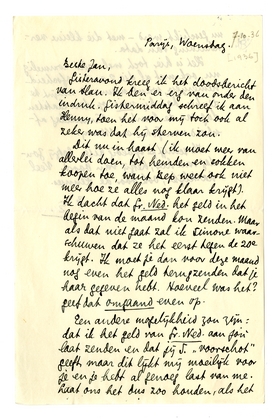 7-10-36
(1936)
Parijs, Woensdag.
Beste Jan,
Gisteravond kreeg ik het doodsbericht
van Han. Ik ben er erg van onder den
indruk. Gistermiddag schreef ik aan
Henny, toen het voor mij toch ook al
zeker was dat hij sterven zou.
Dit nu in haast (ik moet weer van
allerlei doen, tot hemden en sokken
koopen toe, want Bep weet ook niet
meer hoe ze alles nog klaar krijgt).
Ik dacht dat Gr. Ned. het geld in het
begin van de maand kon zenden. Maar
als dat niet gaat zal ik Simone waar-
schuwen dat ze het eerst tegen de 20e
krijgt. Ik moet je dan voor deze maand
nog even het geld terugzenden dat je
haar gegeven hebt. Hoeveel was het?
geef dat omgaand even op.
Een andere mogelijkheid zou zijn:
dat ik het geld van Gr. Ned. aan jou
laat zenden en dat jij S. "voorschot"
geeft maar dit lijkt mij moeilijk voor
je en je hebt al genoeg last van me.
Laat ons het dus zoo houden, als het